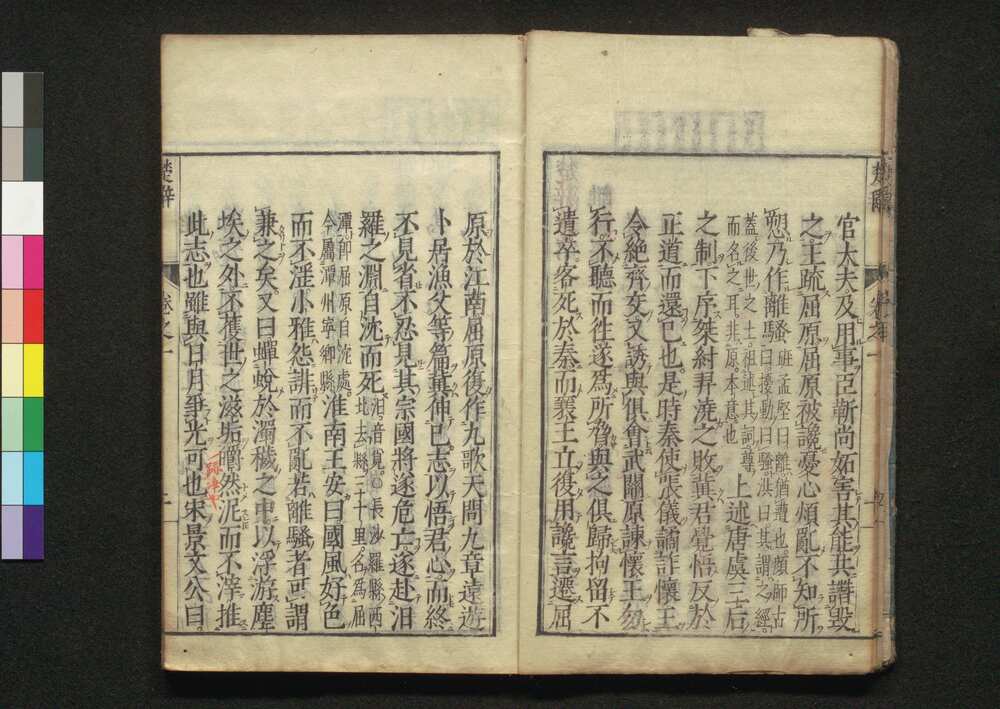 官大夫及用事臣靳尚妬害其能共譖毀
之王疏屈原屈原被讒憂心煩亂不知所
愬乃作離騷班孟堅曰離猶遭也顔師古曰擾動曰騷洪曰其謂之經
蓋後世之士祖述其詞尊而名之耳非原本意也上述唐虞三后
之制下序桀紂羿澆之敗冀君覺悟反於
正道而還己也是時秦使張儀譎詐懷王
令絶齊交又誘與俱會武關原諫懷王勿
行不聽而往遂爲所脅與之俱歸拘留不
遣卒客死於秦而襄王立復用讒言遷屈
楚辭
卷之一
原於江南屈原復作九歌天問九章遠遊
卜居漁父等篇冀伸己志以悟君心而終
不見省不忍見其宗國將遂危亡遂赴汨
羅之淵自沈而死汨音覓○長沙羅縣西北去縣三十里名爲屈
潭即屈原自沈處今屬潭州寧郷縣淮南王安曰國風好色
而不淫小雅怨誹而不亂若離騷者可謂
兼之矣又曰蟬蛻於濁穢之中以浮游塵
埃之外不獲世之滋垢皭然泥而不滓推
此志也雖與日月爭光可也宋景文公曰
楚辭
卷之一